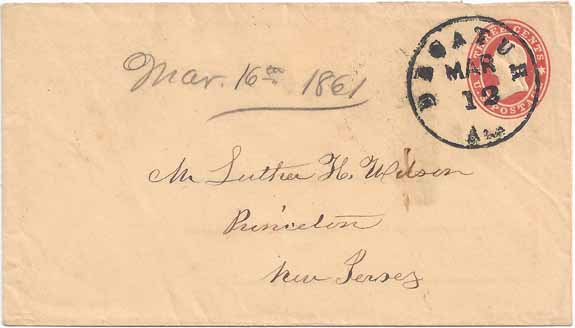 DECATUR
MAR
12
Ala
THREE CENTS
U.S. POSTAGE
Mar. 16th 1861
Mr Luther H. Wilson
Princeton
New Jersey